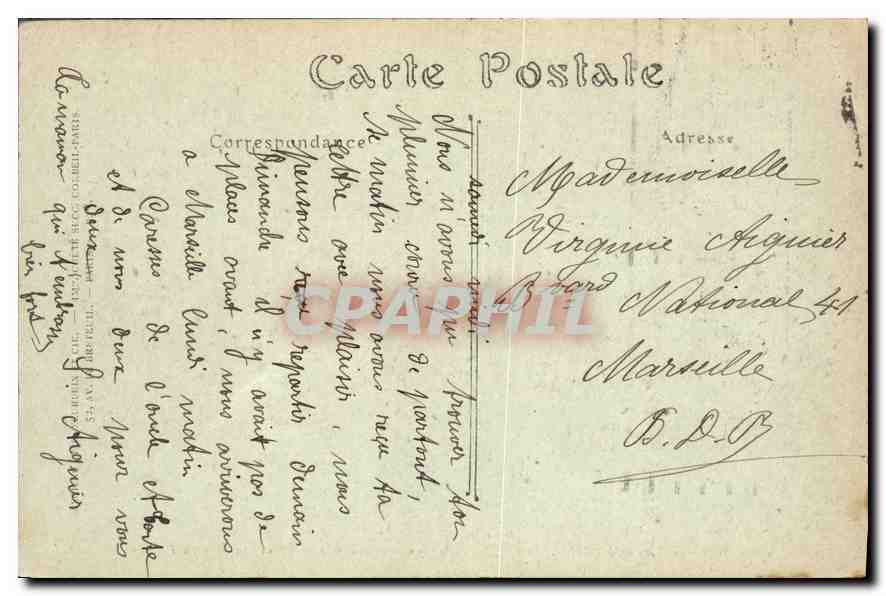 Carte Postale
Correspondance
Adresse
samedi midi
Nous n'avons pu trouver ton
plumier chou de partout,
ce matin nous avons reçu ta
lettre avec plaisir, nous
pensons repartir demain
Dimanche il n'y avait pas de
places avant, nous arriverons
a Marseille lundi matin
Caresses de l'oncle et tante
et de nous deux pour vous
deux
Ta maman qui t'embrasse
bien fort
Aiguier
Mademoiselle
Virginie Aiguier
Bvard National 41
Marseille
B.D.R
CPAPHIL